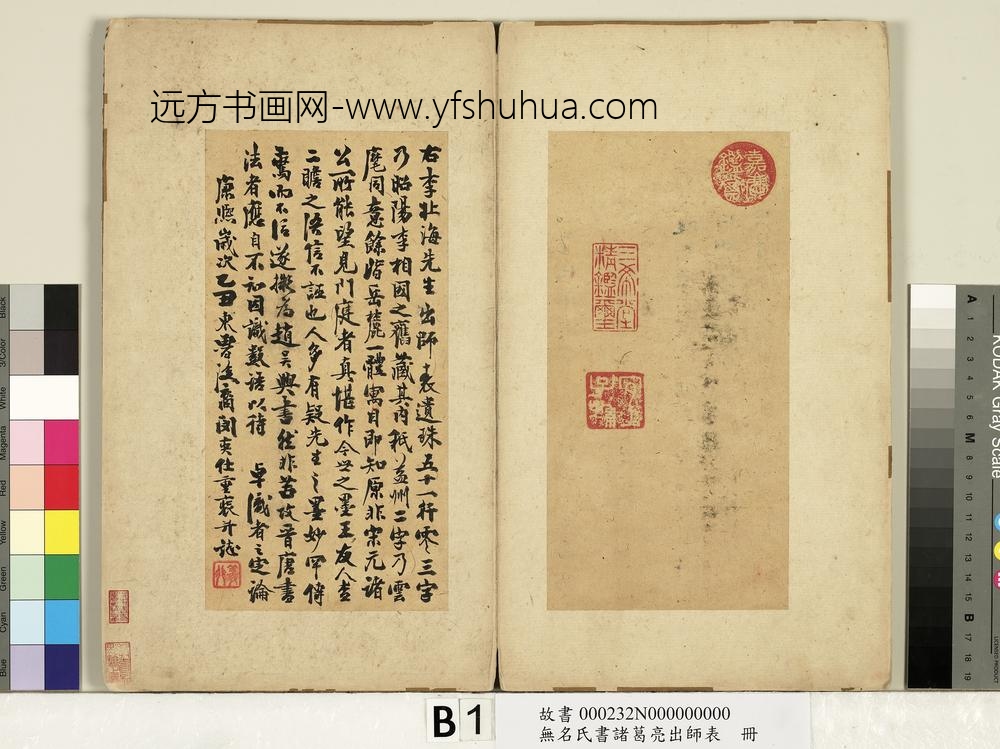 远方书画网-www.yfshuhua.com
嘉慶鑑賞
三希堂精鑑璽
宜子孫
右李北海先生出師表遺珠五十一行零三字
乃昭陽李相國之舊藏其內秖益州二字乃雲
麾同意餘皆岳麓一體寓目即知原非宋元諸
公所能望見門庭者真堪作今世之墨王友人
二瞻之語信不誣也人多有疑先生之墨妙罕傳
而不信遂擬為趙吳興書然非苦攻晉唐書
法者應自不知因識數語以待 卓識者之定論
康熙歲次乙丑東魯 奕仕重裝並誌
Black
3/Color
White
Magenta
Red
Yellow
Green
Cyan
Blue
KODAK Gray Scale
A 1 2 3 4 5 6 M 8 9 10 11 12 13 14 15 B 17 18 19
B1
故書 000232N000000000
無名氏書諸葛亮出師表 冊